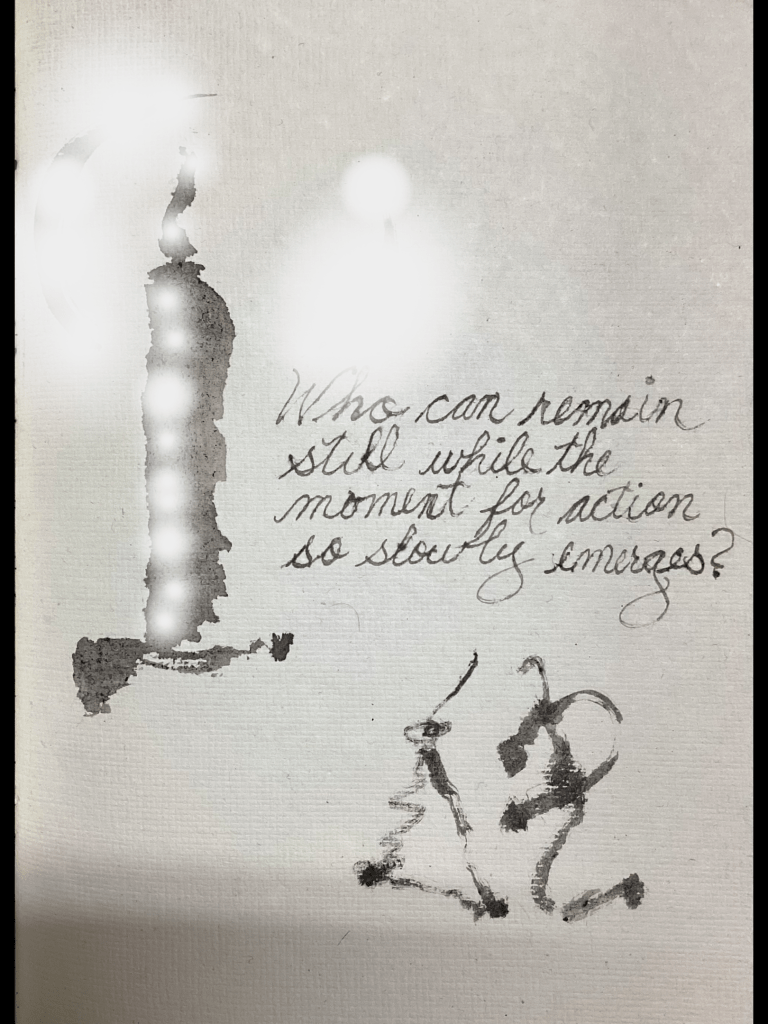 Who can remain
still while the
moment for action
so slowly emerges?